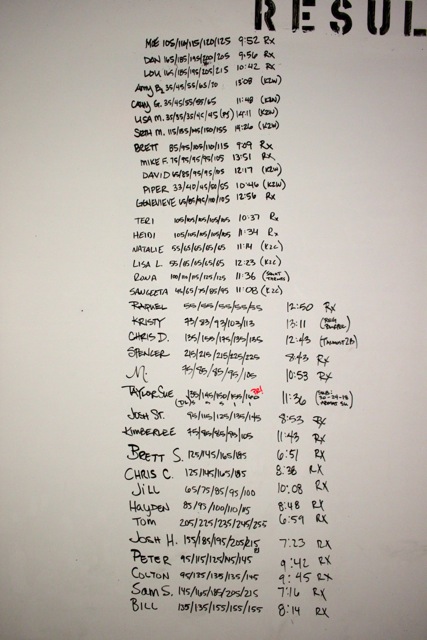 RESUL
MEE 105/110/115/120/125 9:52 Rx
DAN 165/185/195/200/205 9:56 Rx
LOU 165/185/195/205/215 10:42 Rx
Amy B. 35/45/55/65/70 13:08 (K2W)
Cathy G. 35/45/55/55/65 11:48 (K2W)
LISA M. 35/35/35/45/45 14:11 (K2W)
SETH M. 115/135/145/150/155 14:26 (K2W)
BRETT 85/95/105/110/115 9:09 Rx
MIKE F. 75/95/95/95/105 13:51 Rx
DAVID 65/85/95/95/105 12:17 (K2W)
PIPER 33/40/45/50/55 10:46 (K2W)
GENEVIEVE 65/85/95/100/105 12:56 Rx
TERI 105/105/105/105/105 10:37 Rx
HEIDI 105/105/105/105/105 11:34 Rx
NATALIE 55/65/65/65/65 11:14 (K2C)
LISA L. 55/65/65/65/65 12:23 (K2C)
RONA 100/110/115/125/125 11:36
SANGEETA 45/65/75/85/95 11:08 (K2C)
RAQUEL 55/55/55/55/55 12:50 Rx
KRISTY 73/83/93/103/113 13:11
CHRIS D. 135/155/175/135/135 12:43
SPENCER 215/215/215/225/225 8:43 Rx
M. 75/85/85/95/105 10:53 Rx
TAYLOR SUE 135/145/150/155/160 11:36
JOSH ST. 95/115/125/135/145 8:53 Rx
KIMBERLEE 75/85/85/95/105 11:43 Rx
BRETT S. 125/145/165/185 6:51 RX
CHRIS C. 125/145/165/185 8:38 RX
Jill 65/75/85/95/100 10:08 RX
Hayden 85/95/100/110/115 8:48 RX
Tom 205/225/235/245/255 6:59 RX
JOSH H. 155/185/195/205/215 7:23 RX
PETER 95/115/125/145/145 9:42 RX
COLTON 95/135/135/135/145 9:45 RX
Sam S. 145/165/185/205/215 7:16 RX
BILL 135/135/155/155/155 8:14 RX